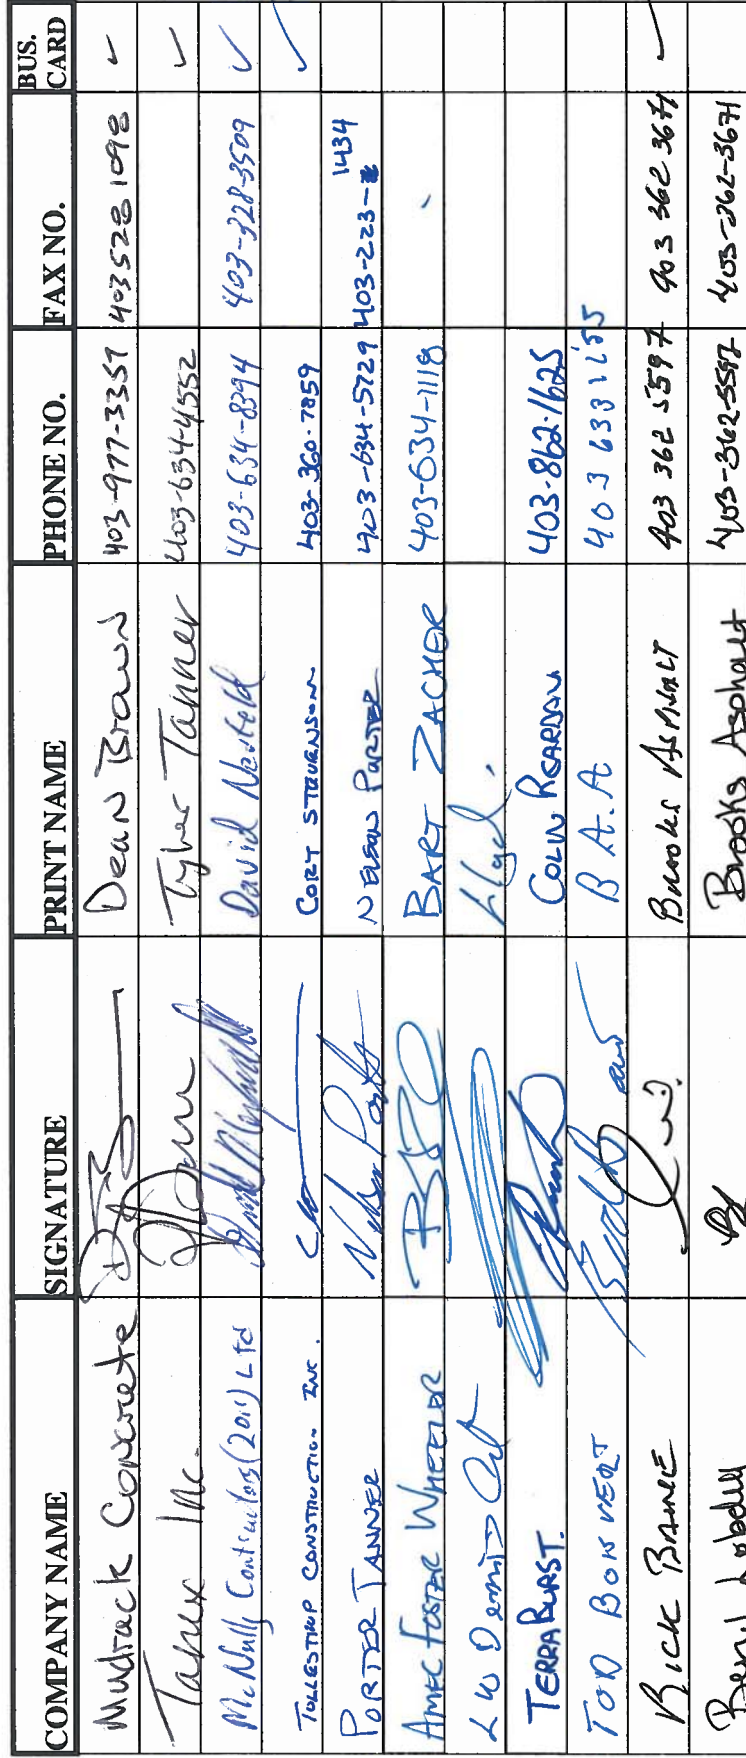 COMPANY NAME SIGNATURE PRINT NAME PHONE NO. FAX NO. BUS. CARD
Mudrack Concrete Dean Brown 403-977-3357 403 528 1098 ✓
Tanex Inc. Tyler Tanner 403-634-4552 ✓
McNally Contractors (2011) Ltd David 403-634-8394 403-328-3509 ✓
TOLLESTRUP CONSTRUCTION INC. CORT STEVENSON 403-360-7859 ✓
PORTER TANNER NELSON PORTER 403-634-5729 403-223-1434
AMEC FOSTER WHEELER BART ZACHER 403-634-1118
LW Dennis Lloyd.
TERRABURST. COLIN REARDON 403-862-1625
TOD BOW VERT B A.A 403 633
RICK Brooks ASPHALT 403 362 5597 403 362 3671 ✓
Brooks Asphalt 403-362-5597 403-362-3671